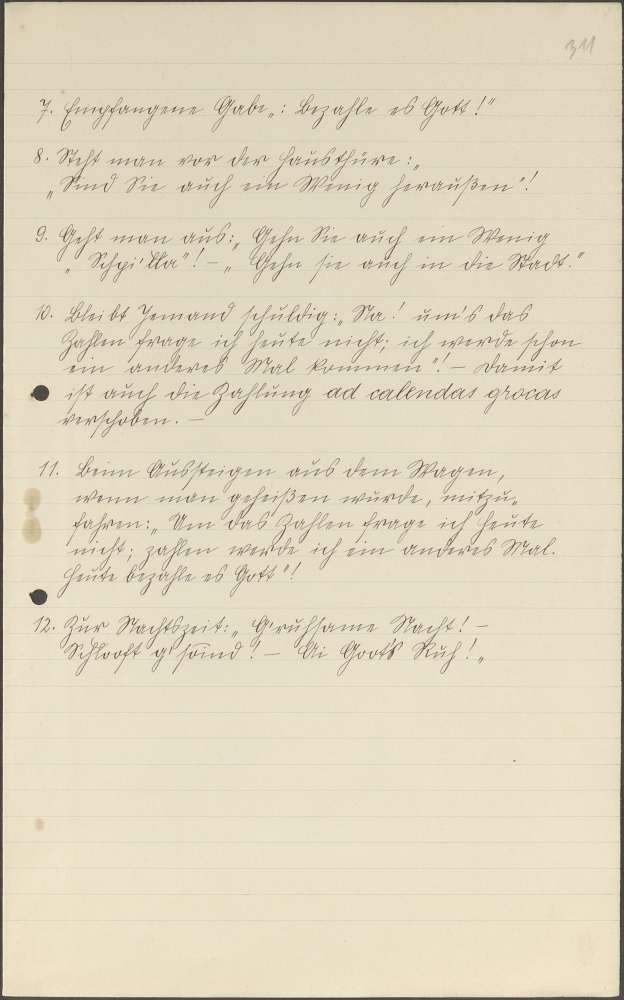 311
7. Empfangene Gabe„: Bezahle es Gott!"
8. Steht man vor der Hausthüre:„
„Sind Sie auch ein Wenig heraußen"!
9. Geht man aus:„ Gehn Sie auch ein Wenig
„ Schpi'lla"! – „ Gehn sie auch in die Stadt."
10. Bleibt Jemand schuldig:„ Na! um's das
Zahlen frage ich heute nicht; ich werde schon
ein anderes Mal kommen"! – Damit
ist auch die Zahlung ad calendas grocas
verschoben. –
11. Beim Aussteigen aus dem Wagen,
wenn man geheißen wurde, mitzu„
fahren:„ Um das Zahlen frage ich heute
nicht; zahlen werde ich ein anderes Mal.
Heute bezahle es Gott"!
12. Zur Nachtszeit:„ G'ruhsame Nacht! –
Schlooft g'söind! – Ai Goots Ruh!„